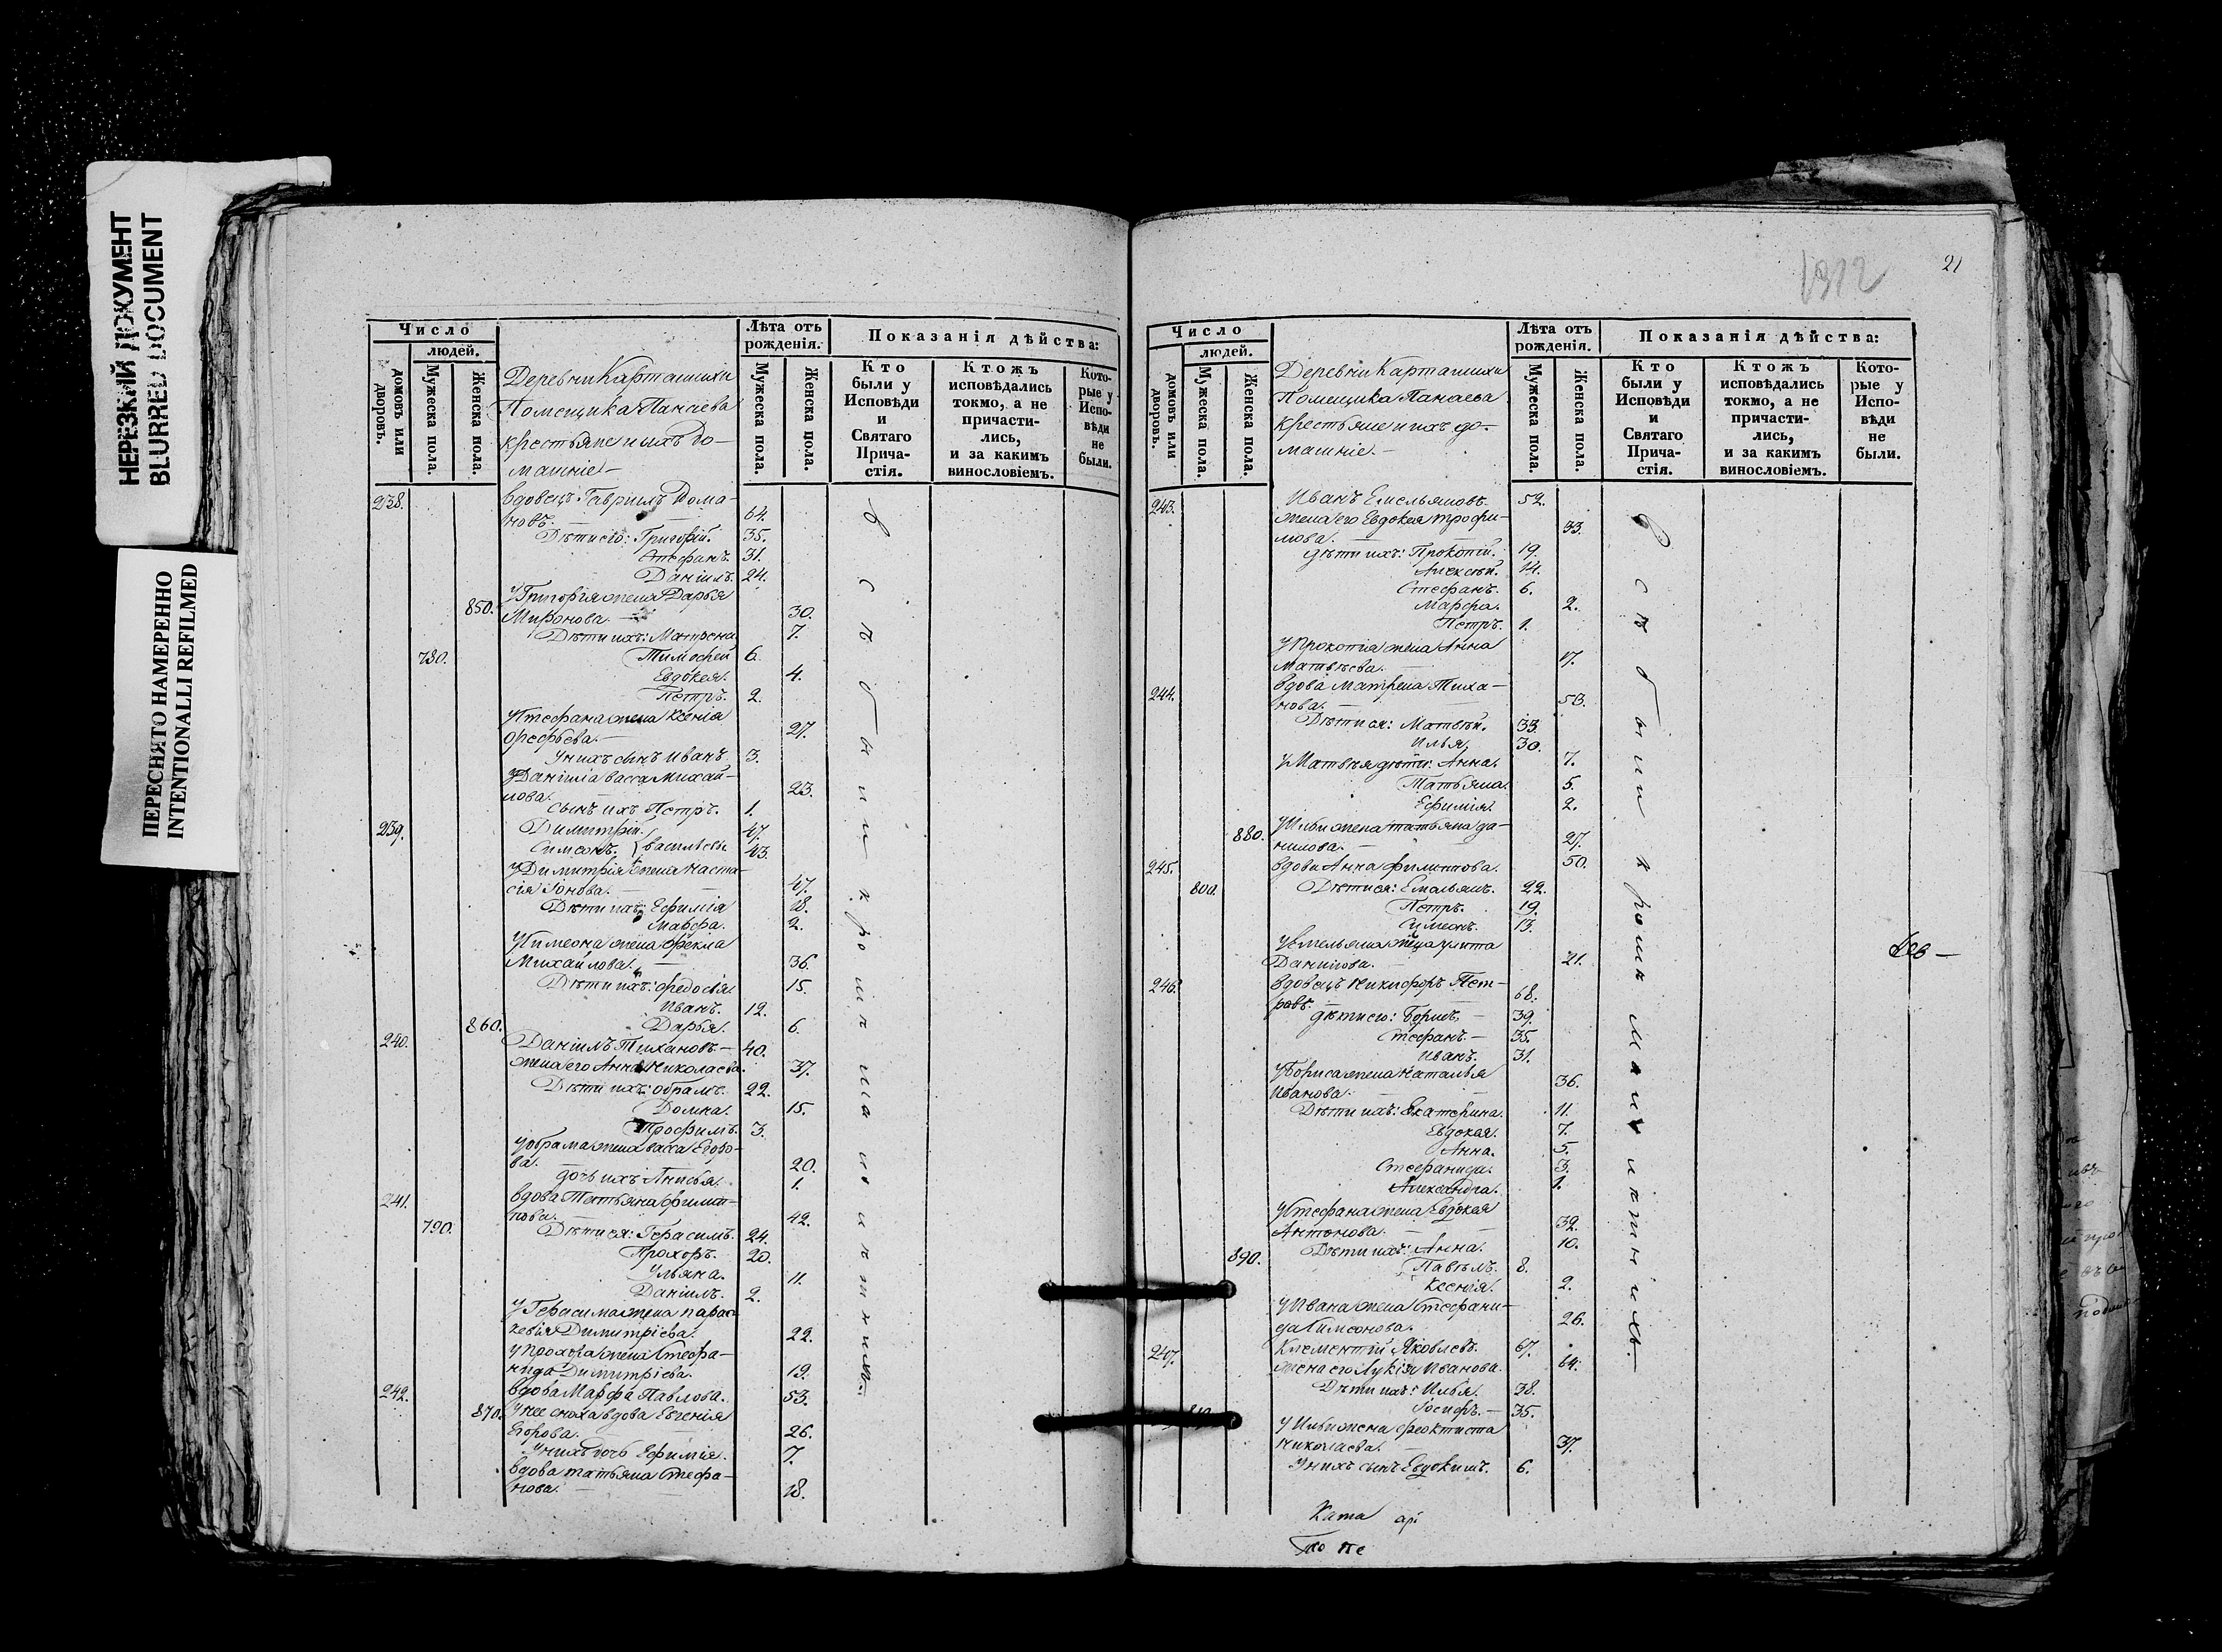 НЕРЕЗКИЙ ДОКУМЕНТ
BLURRED DOCUMENT
ПЕРЕСНЯТО НАМЕРЕННО
INTENTIONALLI REFILMED
Число
людей.
домовъ или дворовъ.
Мужеска пола.
Женска пола.
Деревни Карташихи
Помещика Панаева
крестьяне и ихъ до-
машніе
Лѣта отъ рожденія.
Мужеска пола.
Женска пола.
Показанія дѣйства:
Кто были у Исповѣди и Святаго Прича-стія.
Ктожъ исповѣдались токмо, а не причасти-лись, и за какимъ винословіемъ.
Кото-рые у Испо-вѣди не были.
238. вдовецъ Гавріилъ Дома-
новъ. 64.
Дѣти его: Григорій. 35.
Стефанъ. 31.
Даніилъ. 24.
У Григорія жена Дарья
850. Миронова. 30.
Дѣти ихъ: Матрена 7.
780. Тимофей 6.
Евдокея. 4.
Петръ. 2.
У Стефана жена Ксенія
Орефьева. 27.
У нихъ сынъ Иванъ 3.
У Даніила Васса Михай-
лова. 23.
Сынъ ихъ Петръ. 1.
239. Димитрій. 47.
Симеонъ. Васильевы 43.
У Димитрія жена Наста-
сія Іонова. 47.
Дѣти ихъ: Ефимія 18.
Марфа. 2.
У Симеона жена Фекла
Михайлова. 36.
Дѣти ихъ: Федосья. 15.
Иванъ. 12.
860. Дарья. 6.
240. Даніилъ Тихановъ. 40.
жена его Анна Николаева. 37.
Дѣти ихъ: Обрамъ. 22.
Домна. 15.
Трофимъ. 3.
У Обрама жена Васса Егоро-
ва. 20.
дочь ихъ Анисья. 1.
241. вдова Татьяна Филип-
пова. 42.
790. Дѣти ея: Герасимъ. 24.
Прохоръ. 20.
Ульяна. 11.
Даніилъ. 2.
У Герасима жена Парас-
кевія Димитріева. 22.
У Прохора жена Стефа-
нида Димитріева. 19.
242. вдова Марфа Павлова. 53.
870. У нее сноха вдова Евгенія
Егорова. 26.
У нихъ дочь Ефимія. 7.
вдова Татьяна Стефа-
нова. 18.
всѣ были кромѣ малолѣтнихъ.
1312
21
Число
людей.
домовъ или дворовъ.
Мужеска пола.
Женска пола.
Деревни Карташихи
Помещика Панаева
крестьяне и ихъ до-
машніе.
Лѣта отъ рожденія.
Мужеска пола.
Женска пола.
Показанія дѣйства:
Кто были у Исповѣди и Святаго Прича-стія.
Ктожъ исповѣдались токмо, а не причасти-лись, и за какимъ винословіемъ.
Кото-рые у Испо-вѣди не были.
243. Иванъ Емельяновъ. 52.
жена его Евдокея Трофи-
мова. 33.
дѣти ихъ: Прокопій. 19.
Алексѣй. 14.
Стефанъ. 6.
Марфа. 2.
Петръ. 1.
У Прокопія жена Анна
Матвѣева. 17.
244. вдова Матрена Тиха-
нова. 53.
Дѣти ея: Матвѣй. 33.
Илья. 30.
У Матвѣя дѣти: Анна. 7.
Татьяна. 5.
Ефимія. 2.
У Ильи жена Татьяна Да-
880. нилова. 27.
245. вдова Анна Филиппова. 50.
800. Дѣти ея: Емельянъ. 22.
Петръ. 19.
Симеонъ. 13.
У Емельяна жена Улита
Данилова. 21.
246. вдовецъ Никифоръ Пет-
ровъ. 68.
дѣти его: Борисъ. 39.
Стефанъ. 35.
Иванъ. 31.
У Бориса жена Наталья
Иванова. 36.
Дѣти ихъ: Екатерина. 11.
Евдокея. 7.
Анна. 5.
Стефанида. 3.
Александра. 1.
У Стефана жена Евдокея
Антонова. 32.
890. Дѣти ихъ: Анна. 10.
Павелъ. 8.
Ксенія. 2.
У Ивана жена Стефани-
да Симеонова. 26.
247. Климентій Яковлевъ. 67.
жена его Лукія Иванова. 64.
Дѣти ихъ: Илья. 38.
Іосифъ. 35.
У Ильи жена Феоктиста
Николаева. 37.
У нихъ сынъ Евдокимъ. 6.
всѣ были кромѣ малолѣтнихъ.